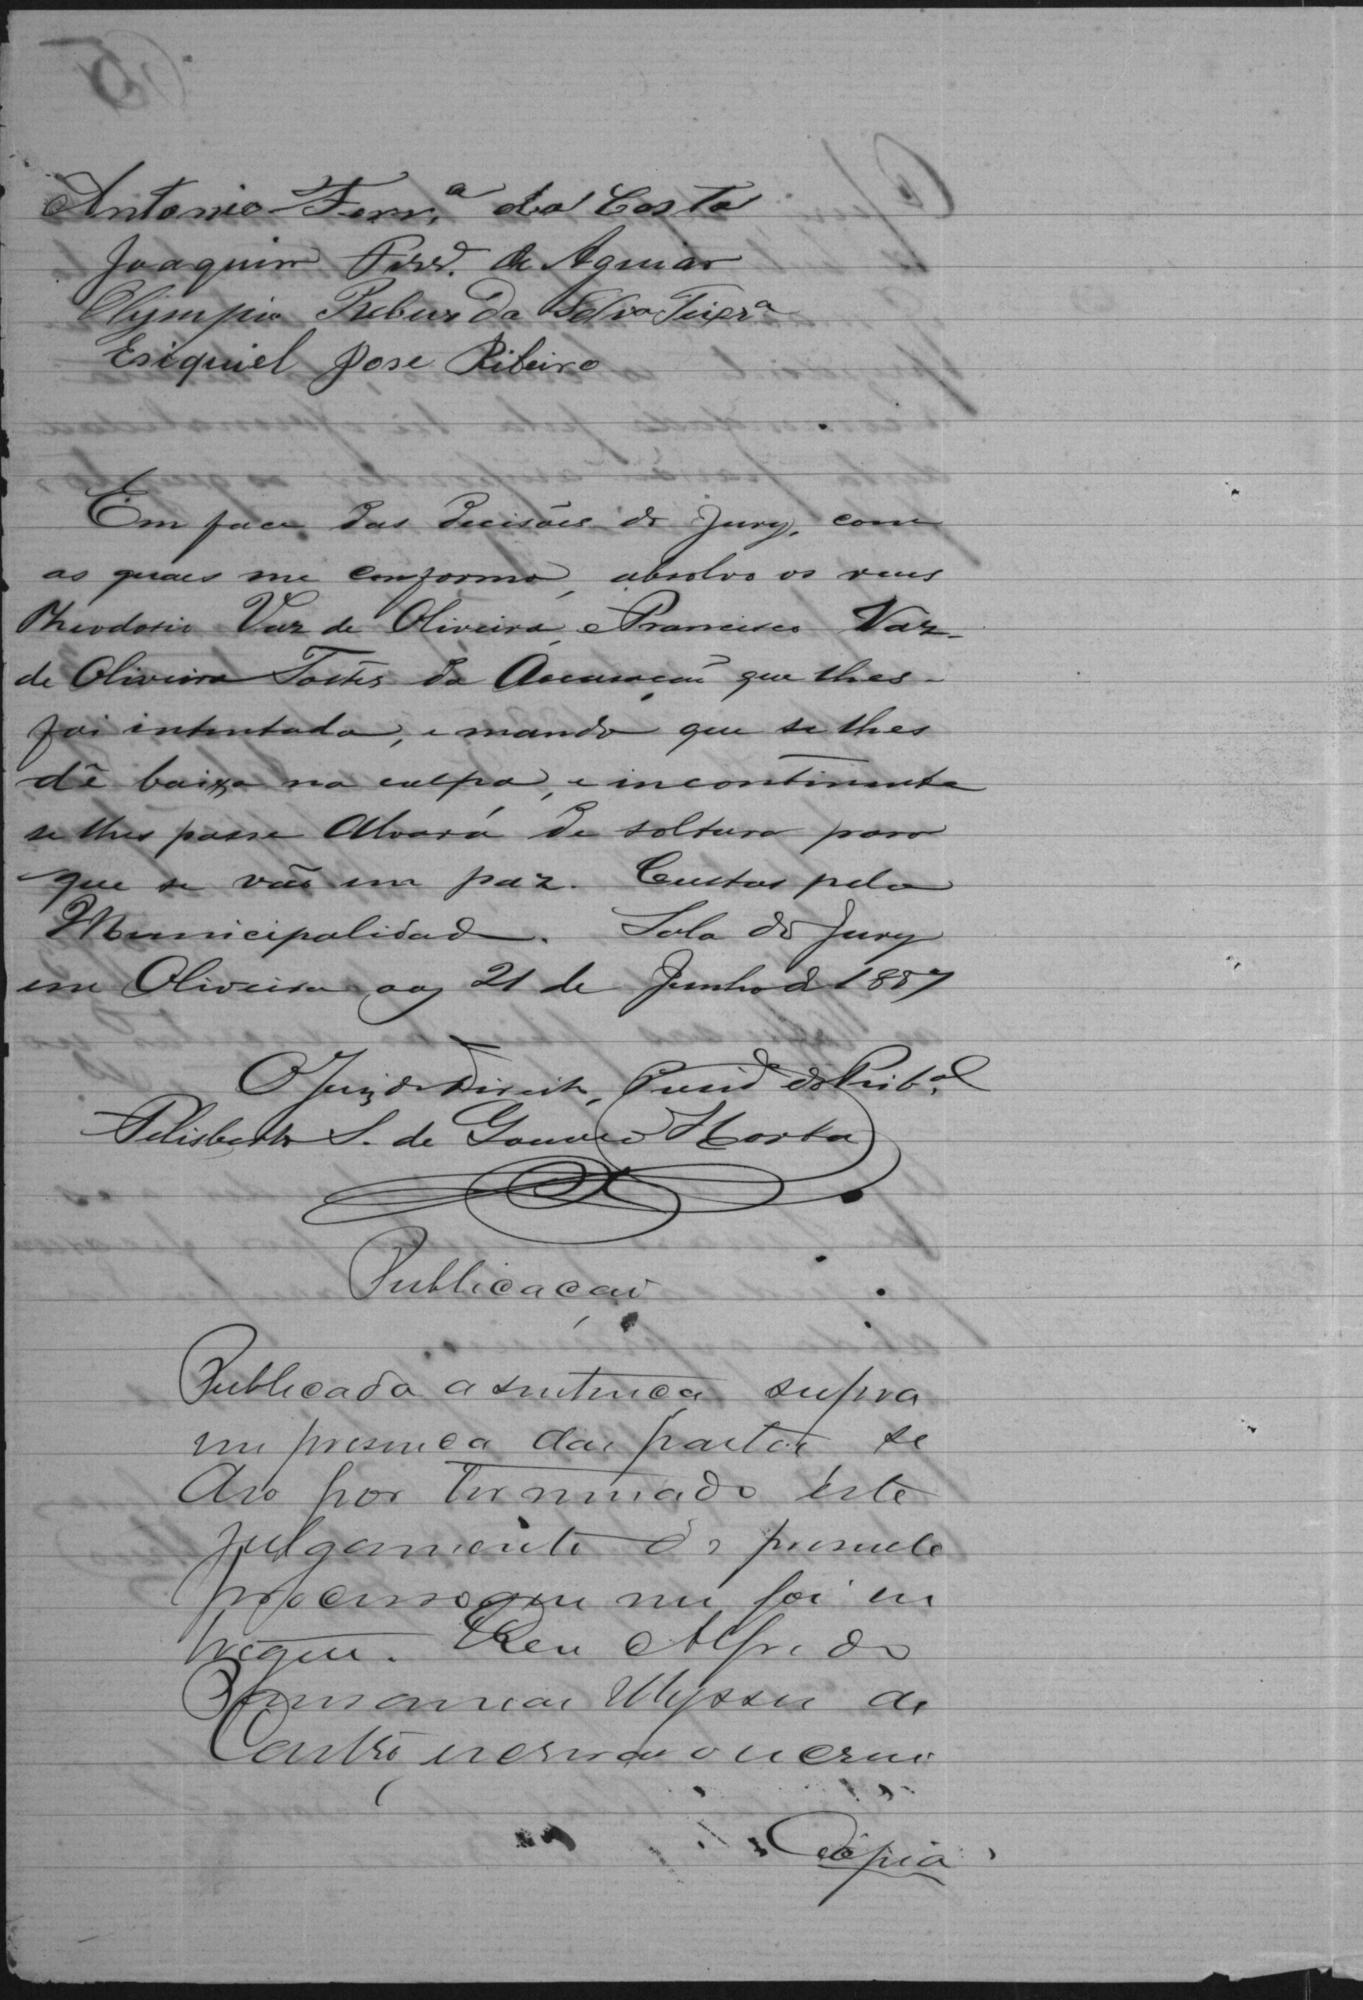 Antonio Ferr.ª da Costa
Joaquim de Aguiar
Olympio da Silva Teixrª
Esiquiel Jose Ribeiro
Em face das decisões do Jury, com
as quaes me conformo, absolvo os reus
Theodosio Vaz de Oliveira, e Francisco Vaz
de Oliveira Tostes da Accusação que lhes
foi intentada, e mando que se lhes
dê baixa na culpa, e incontinente
se lhes passe Alvará de soltura para
que se vão em paz. Custas pela
Municipalidade. Sala do Jury
em Oliveira aos 21 de Junho de 1887
O Juiz de Direito, Presid.e do Trib.al
Felisberto S. de Gouvea Horta
Publicação
Publicada a sentença supra
em presença das partes se
deo por terminado este
julgamento do presente
processo que me foi en
tregue. Eu Alfredo
Ulysses de
Castro escrivão o escrevi
Cópia